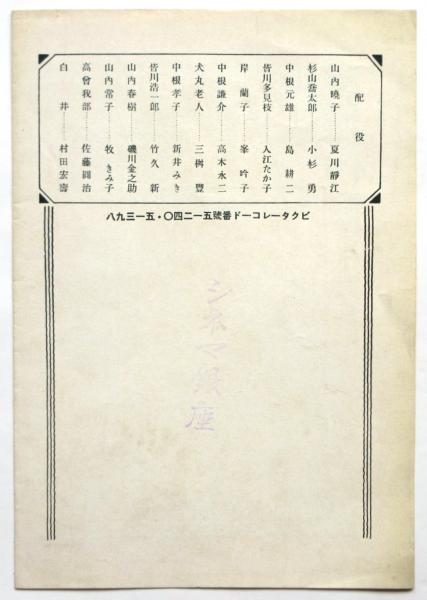 配役
山内曉子……夏川靜江
杉山喬太郎……小杉勇
中根元雄……島耕二
皆川多見枝……入江たか子
岸蘭子……峯吟子
中根謙介……高木永二
犬丸老人……三桝豐
中根孝子……新井みき
皆川浩一郎……竹久新
山内春樹……磯川金之助
山内常子……牧きみ子
高曾我部……佐藤圓治
白井……村田宏壽
ビクターレコード番號五一二四〇・五一三九八
シネマ銀座